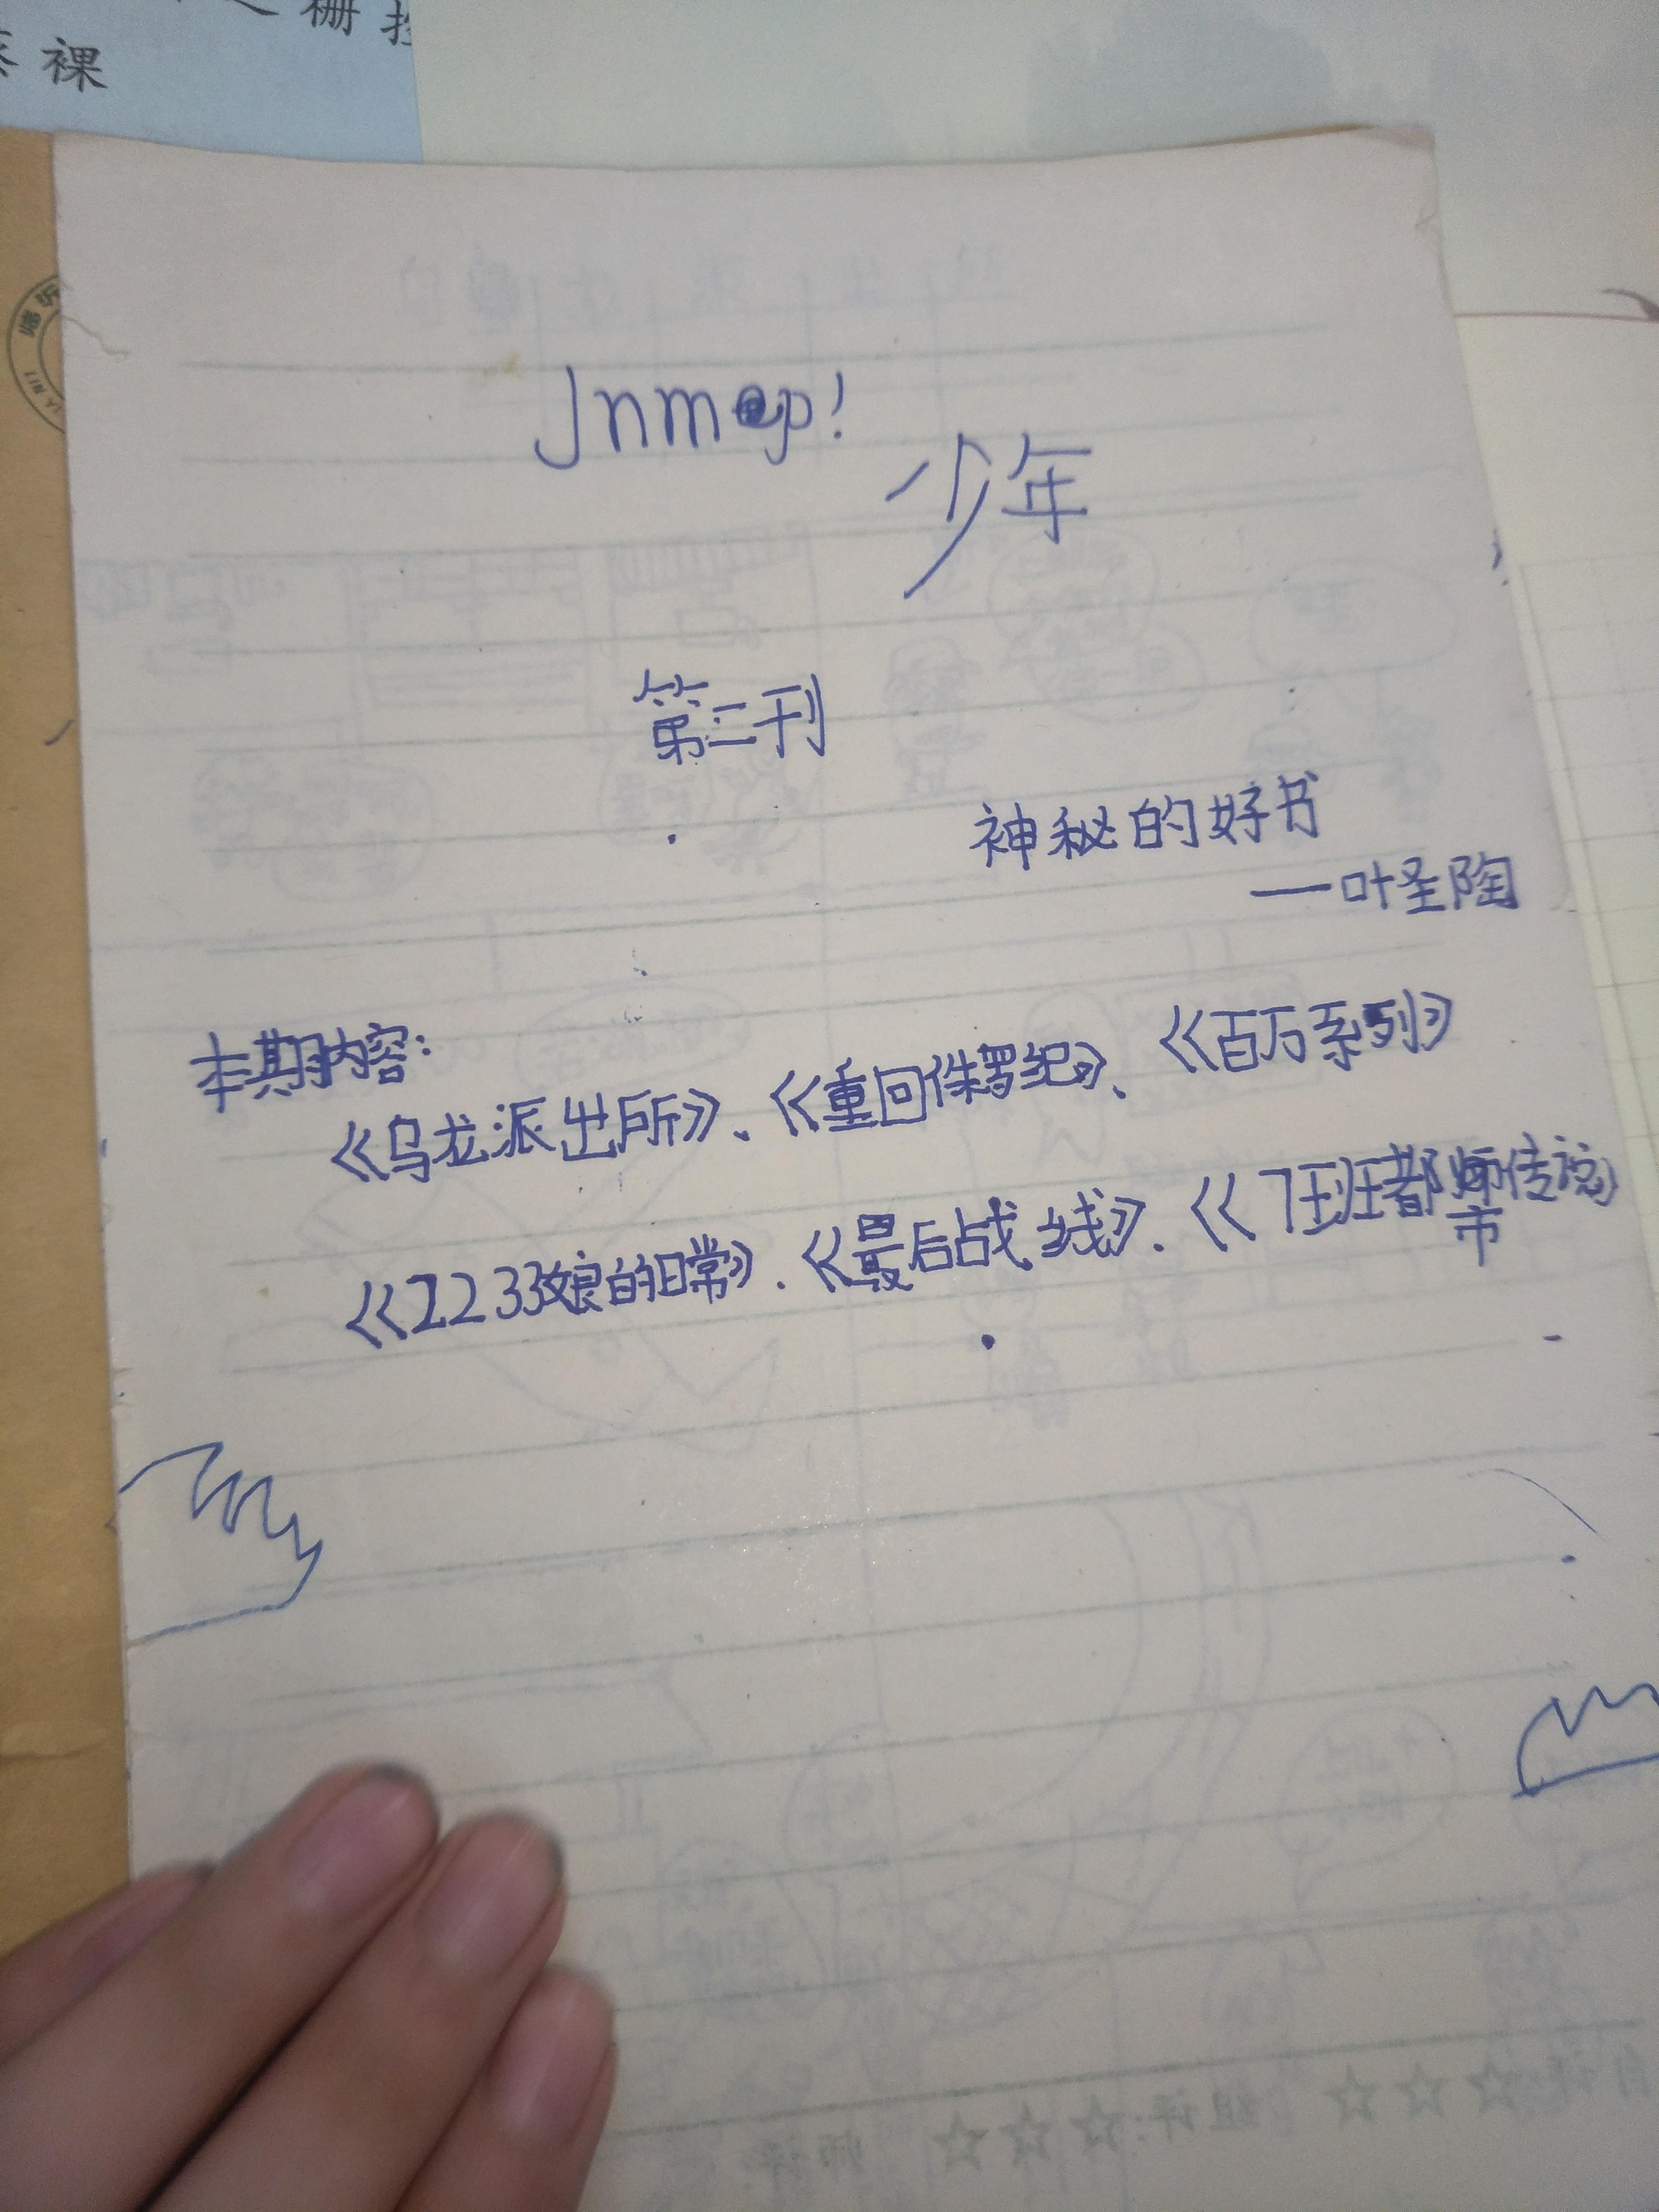 栅
裸
Jnmp!
少年
第二刊
神秘的好书
—叶圣陶
本期内容:
《乌龙派出所》、《重回侏罗纪》、《百万系列》
《2233娘的日常》.《最后战线》.《7班都市传说》
自评:☆☆☆ 组评:☆☆☆ 师评: